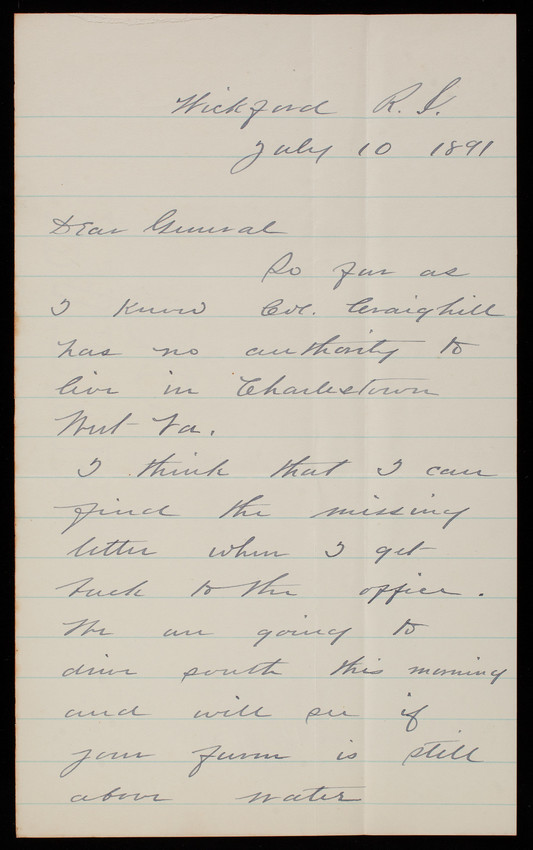 Wickford R. I.
July 10 1891
Dear General
So far as
I know Col. Craighill
has no authority to
live in Charlestown
West Va.
I think that I can
find the missing
letter when I get
back to the office.
We are going to
drive south this morning
and will see if
your farm is still
above water